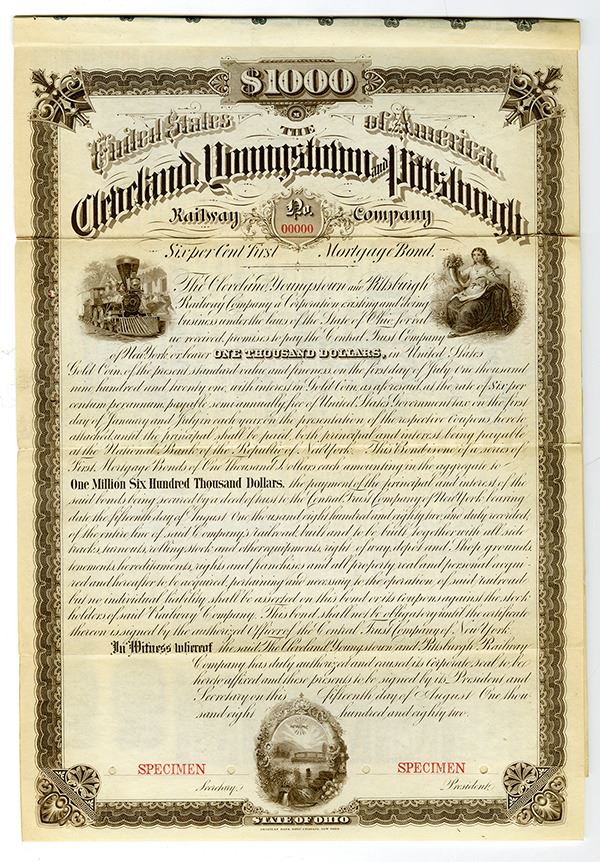 $1000
United States of America.
THE
Cleveland, Youngstown and Pittsburgh
Railway No. Company
00000
Six per Cent First Mortgage Bond.
The Cleveland, Youngstown and Pittsburgh
Railway Company a Corporation existing and doing
business under the laws of the State of Ohio for val-
ue received, promises to pay the Central Trust Company
of New York or bearer ONE THOUSAND DOLLARS, in United States
Gold Coin, of the present standard value and fineness, on the first day of July One thousand
nine hundred and twenty one, with interest in Gold Coin, as aforesaid at the rate of Six per
centum per annum, payable semi annually, free of United States Government tax on the first
day of January and July in each year on the presentation of the respective Coupons hereto
attached until the principal shall be paid, both principal and interest being payable
at the National Bank of the Republic of New York. This Bond is one of a series of
First Mortgage Bonds of One Thousand Dollars each amounting in the aggregate to
One Million Six Hundred Thousand Dollars, the payment of the principal and interest of the
said bonds being secured by a deed of trust to the Central Trust Company of New York bearing
date the fifteenth day of August One thousand eight hundred and eighty two, and duly recorded,
of the entire line of said Company's railroad, built and to be built, together with all side
tracks, turnouts, rolling stock and other equipments, right of way, depot and Shop grounds,
tenements, hereditaments, rights and franchises and all property, real and personal acqui-
red and hereafter to be acquired pertaining and necessary to the operation of said railroad
but no individual liability shall be asserted on this bond or its coupons against the stock
holders of said Railway Company. This bond shall not be obligatory until the certificate
thereon is signed by the authorized Officer of the Central Trust Company of New York.
In Witness whereof the said The Cleveland Youngstown and Pittsburgh Railway
Company has duly authorized and caused its corporate seal to be
hereto affixed and these presents to be signed by its President and
Secretary on this fifteenth day of August One thou
sand eight hundred and eighty two.
SPECIMEN SPECIMEN
Secretary. President.
STATE OF OHIO
AMERICAN BANK NOTE COMPANY, NEW YORK